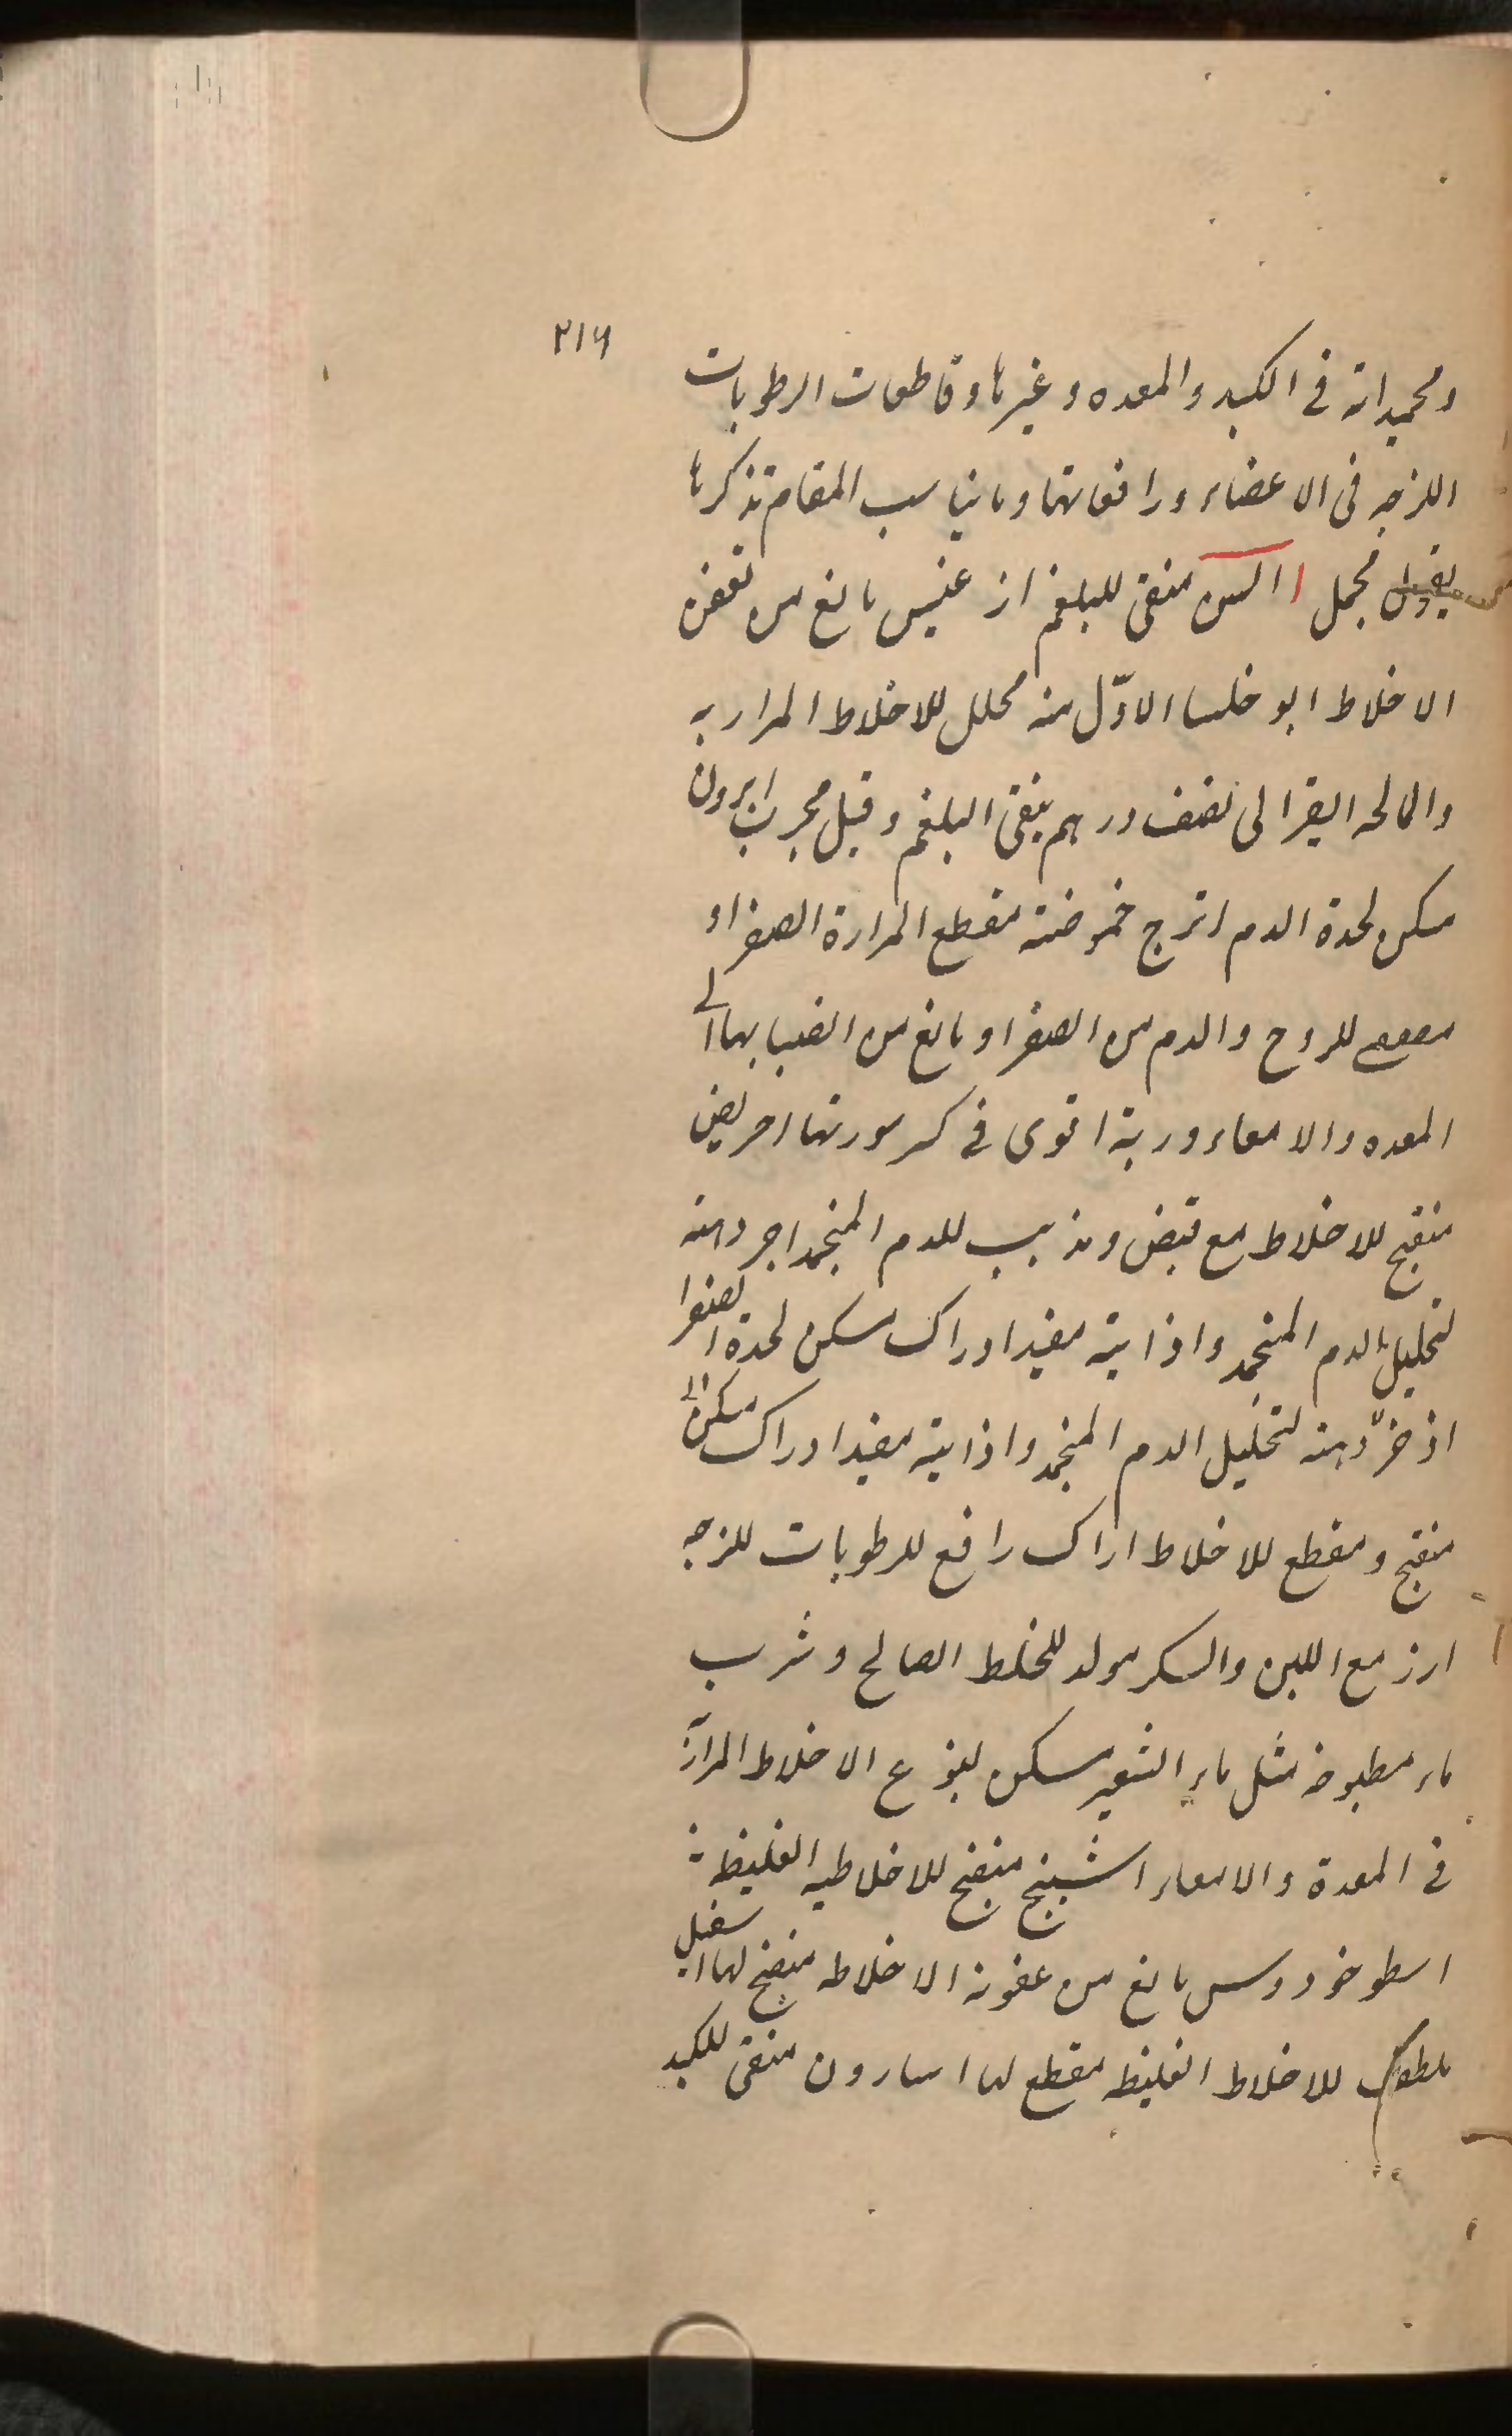 ٢١٦
ومجمداته فی الکبد والمعده وغیرها وقاطعات الرطوبات
اللزجه فی الاعضاء ورافعاتها وما یناسب المقام تذکرها
بقول مجمل منقی للبلغم مانع من تعفن
الاخلاط ابو خلسا الاوّل منه محلل للاخلاط المراریه
والمالحه الی نصف درهم ینقی البلغم وقیل مجرب
مسکن لحدة الدم اترج حموضته مقطع المرارة الصفراء
للروح والدم من الصفرا ومانع من انصبابها الی
المعده والامعاء وربه اقوی فی کسر سورتها احریض
منضج للاخلاط مع قبض ومذیب للدم المنجمد
لتحلیل الدم المنجمد واذابته مفید ادراک مسکن لحدة الصفرا
اذخر دهنه لتحلیل الدم المنجمد واذابته مفید ادراک مسکن
منضج ومقطع للاخلاط اراک رافع للرطوبات للزجه
ارز مع اللبن والسکر مولد للخلط الصالح وشرب
ماء مطبوخه مثل ماء الشعیر مسکن للذع الاخلاط
فی المعدة والامعاء منضج للاخلاط الغلیظه
اسطوخودوس مانع من عفونة الاخلاط منضج لها
للاخلاط الغلیظه مقطع لها اسارون منقی للکبد